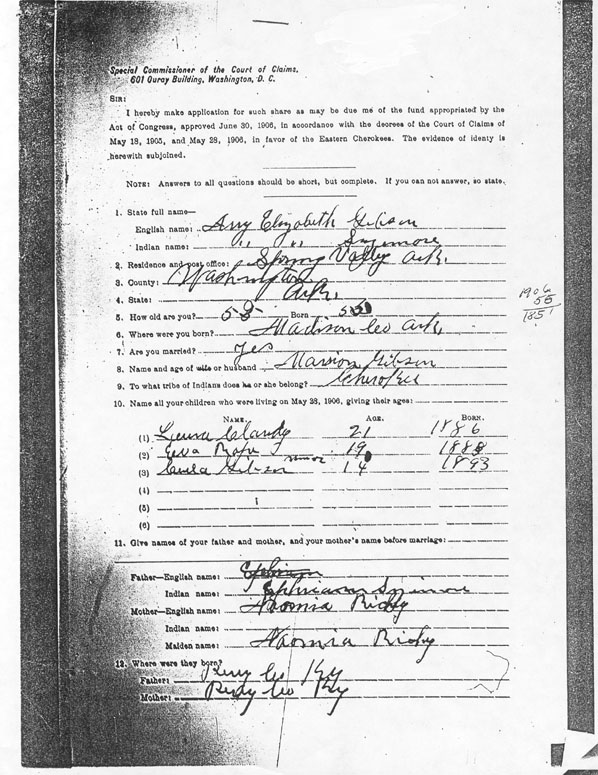 Special Commissioner of the Court of Claims,
601 Ouray Building, Washington, D. C.
SIR:
I hereby make application for such share as may be due me of the fund appropriated by the
Act of Congress, approved June 30, 1906, in accordance with the decrees of the Court of Claims of
May 18, 1905, and May 28, 1906, in favor of the Eastern Cherokees. The evidence of identy is
herewith subjoined.
NOTE: Answers to all questions should be short, but complete. If you can not answer, so state.
1. State full name—
English name: Elizabeth Gibson
Indian name: " " Sizemore
2. Residence and post office: Spring Valley Ark.
3. County: Washington
4. State: Ark.
1906
55
1851
5. How old are you? 55 Born
6. Where were you born? Madison Co Ark.
7. Are you married? Yes
8. Name and age of wife or husband Marion Gibson
9. To what tribe of Indians does he or she belong? Cherokee
10. Name all your children who were living on May 28, 1906, giving their ages:
NAME. AGE. BORN.
(1) 21 1886
(2) 19 1888
(3) Gibson minor 14 1893
(4)
(5)
(6)
11. Give names of your father and mother, and your mother's name before marriage:
Father—English name:
Indian name: Ephriam
Mother—English name: Naomia
Indian name:
Maiden name: Naomia
12. Where were they born?
Father: Co Ky
Mother: Co Ky